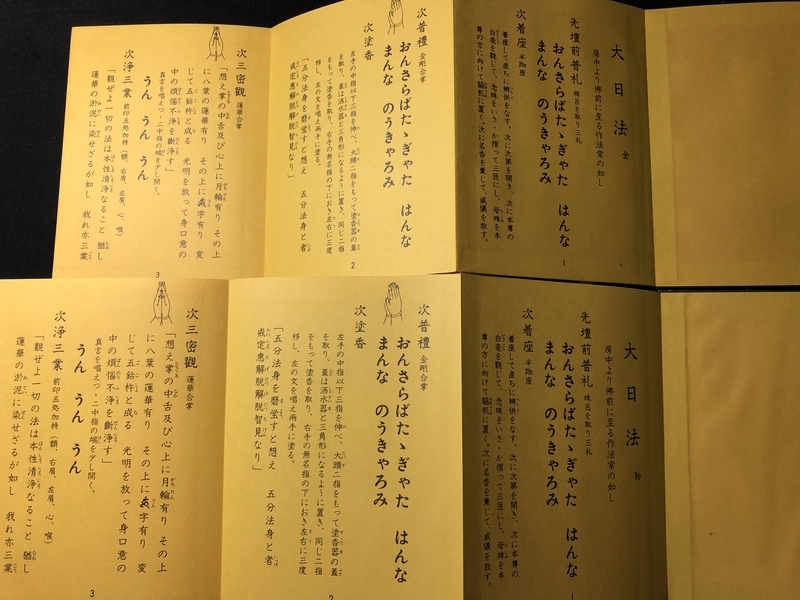 大日法 金
房中より佛前に至る作法常の如し
先壇前普礼 珠呂を取り三礼
おんさらばたゝぎゃた はんな
まんな のうきゃろみ
次着座 半跏座
着座して直ちに辨供をなす。次に次第を開き、次に本尊の
白毫を觀じて、念珠をいさゝか摺って三匝にし、母珠を本
尊の方に向けて脇机に置く。次に名香を薫じて、威儀を放す。
1
次普禮 金剛合掌
おんさらばたゝぎゃた はんな
まんな のうきゃろみ
次塗香
左手の中指以下三指を伸べ、大頭二指をもって塗香器の蓋
を取り、蓋は洒水器と三角形になるように置き、同じ二指
をもって塗香を取り、右手の無名指の下におき左右に三度
移し、左の文を唱え兩手に塗る。
「五分法身を磨瑩すと想え 五分法身と者
戒定惠解脱解脱智見なり」
2
次三密觀 蓮華合掌
「想え掌の中舌及び心上に月輪有り その上
に八葉の蓮華有り その上に字有り 変
じて五鈷杵と成る 光明を放って身口意の
中の煩惱不浄を斷浄す」
真言を唱えつゝ二中指の端を少し開く。
うん うん うん
次浄三業 前印五処加持(額、右肩、左肩、心、喉)
「觀ぜよ一切の法は本性清浄なること 猶し
蓮華の淤泥に染せざるが如し 我れ亦三業
3
大日法 胎
房中より佛前に至る作法常の如し
先壇前普礼 珠呂を取り三礼
おんさらばたゝぎゃた はんな
まんな のうきゃろみ
次着座 半跏座
着座して直ちに辨供をなす。次に次第を開き、次に本尊の
白毫を觀じて、念珠をいさゝか摺って三匝にし、母珠を本
尊の方に向けて脇机に置く。次に名香を薫じて、威儀を放す。
1
次普禮 金剛合掌
おんさらばたゝぎゃた はんな
まんな のうきゃろみ
次塗香
左手の中指以下三指を伸べ、大頭二指をもって塗香器の蓋
を取り、蓋は洒水器と三角形になるように置き、同じ二指
をもって塗香を取り、右手の無名指の下におき左右に三度
移し、左の文を唱え兩手に塗る。
「五分法身を磨瑩すと想え 五分法身と者
戒定惠解脱解脱智見なり」
2
次三密觀 蓮華合掌
「想え掌の中舌及び心上に月輪有り その上
に八葉の蓮華有り その上に字有り 変
じて五鈷杵と成る 光明を放って身口意の
中の煩惱不浄を斷浄す」
真言を唱えつゝ二中指の端を少し開く。
うん うん うん
次浄三業 前印五処加持(額、右肩、左肩、心、喉)
「觀ぜよ一切の法は本性清浄なること 猶し
蓮華の淤泥に染せざるが如し 我れ亦三業
3